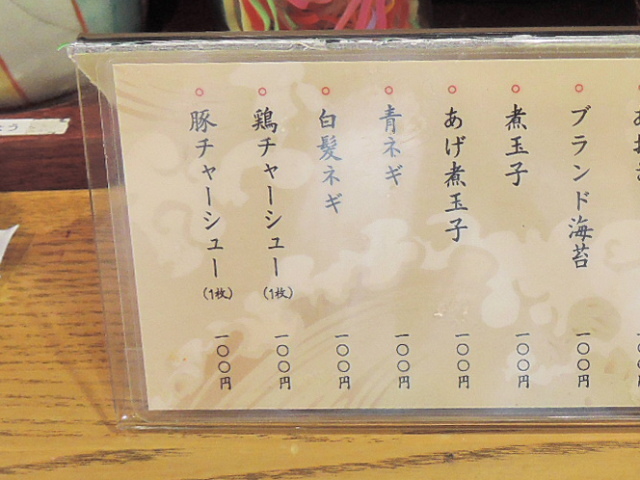 ブランド海苔 一〇〇円
煮玉子 一〇〇円
あげ煮玉子 一〇〇円
青ネギ 一〇〇円
白髪ネギ 一〇〇円
鶏チャーシュー(1枚) 一〇〇円
豚チャーシュー(1枚) 一〇〇円